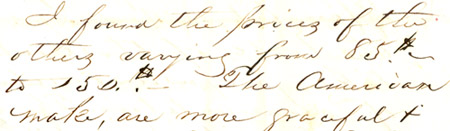 I found the prices of the
others varying from 85.#
to 150.# The American
make, are more graceful &